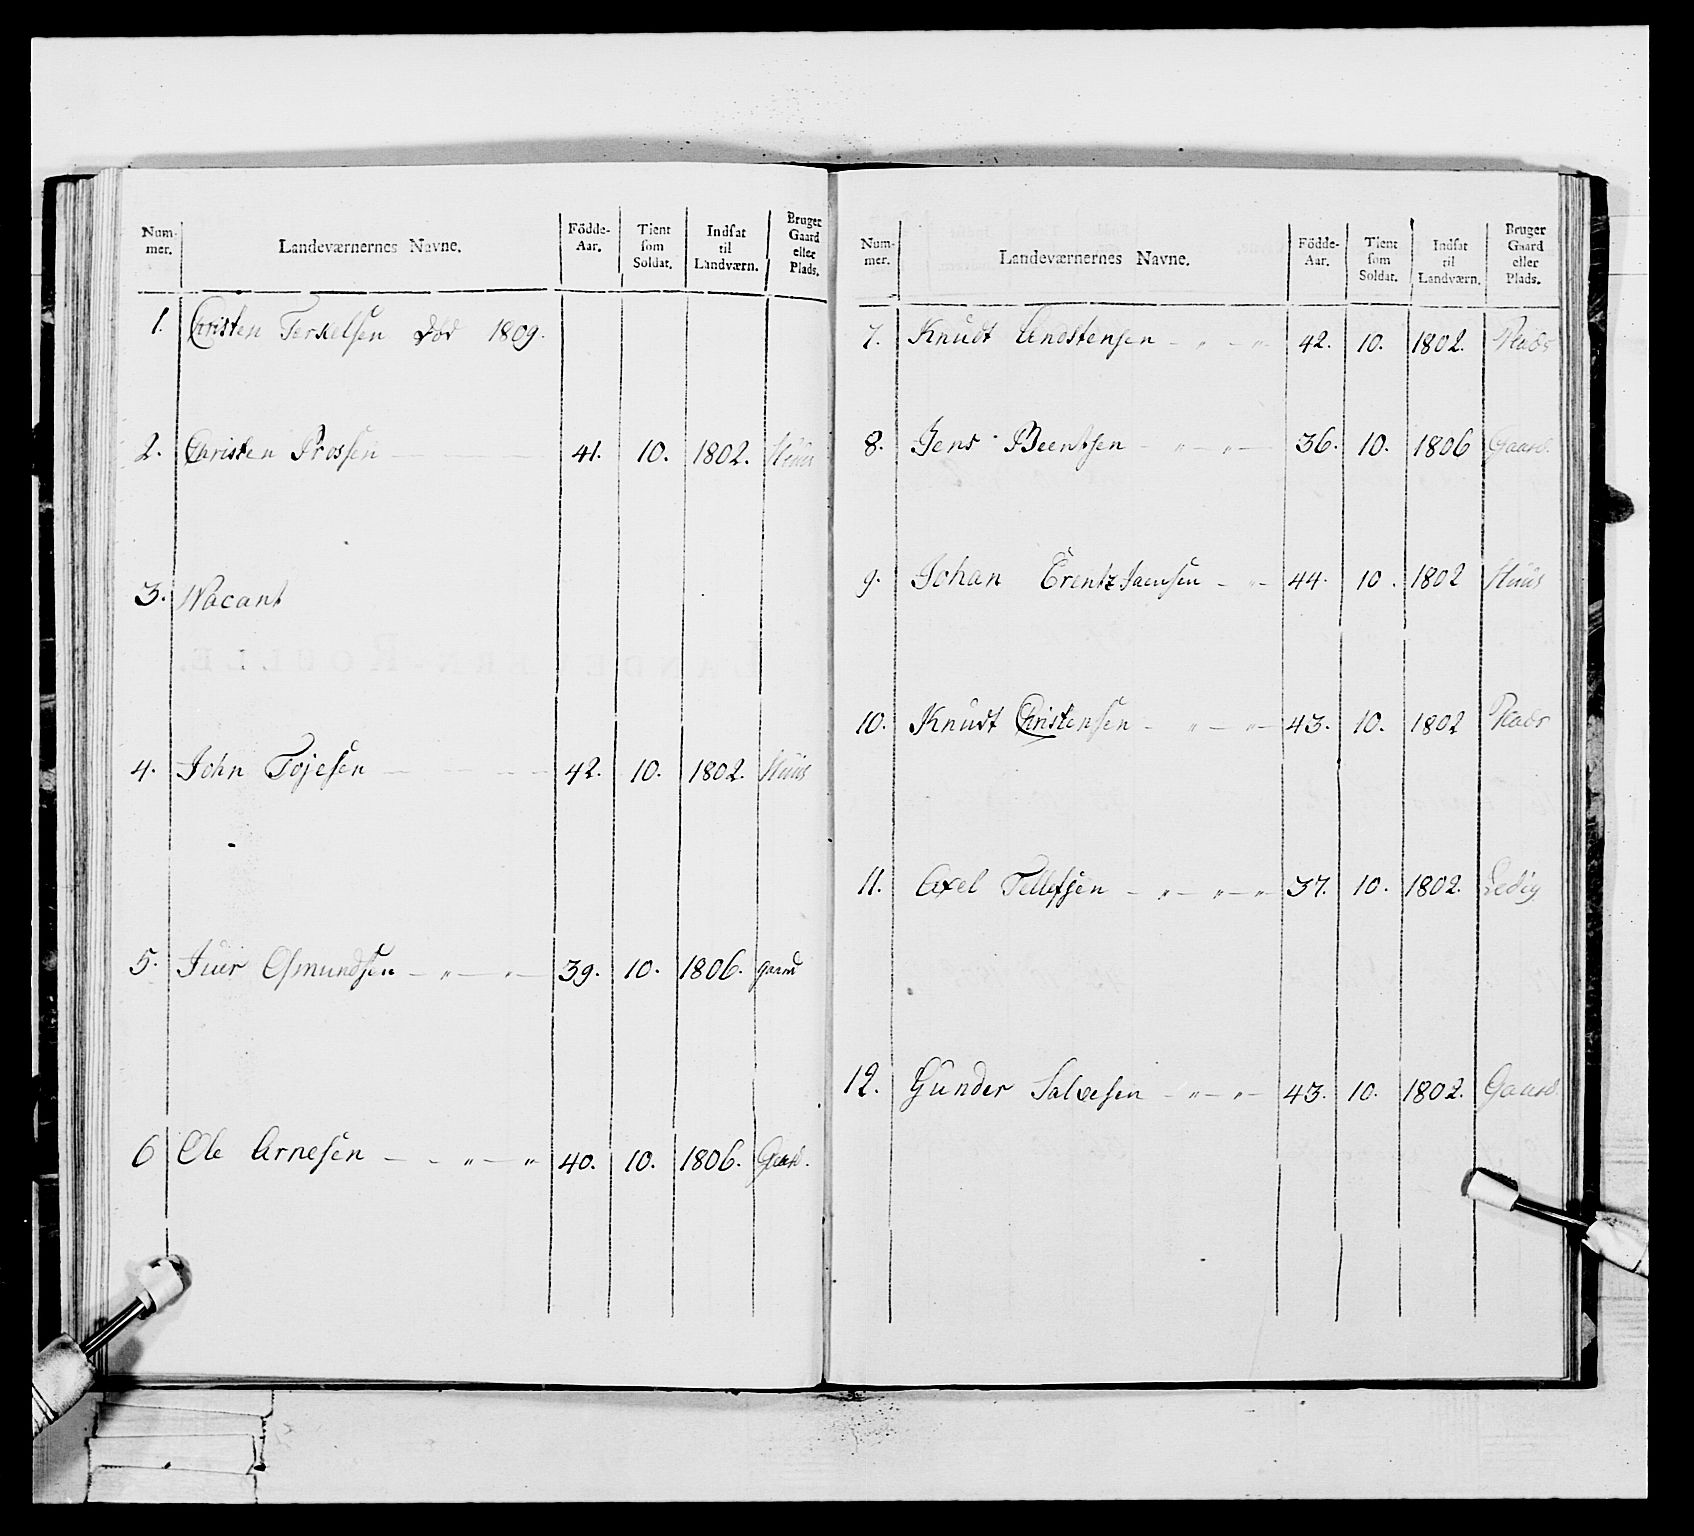 Num-
mer.
Landeværnernes Navne.
Födde-
Aar.
Tient
som
Soldat.
Indsat
til
Landværn.
Bruger
Gaard
eller
Plads.
1. Christen Terkelsen Död 1809.
2. Christen Prossen — — — 41. 10. 1802. Huus
3. Vacant
4. John Tojesen — — — 42. 10. 1802. Huus
5. Juer Osmundsen — „ — „ — 39. 10. 1806. gaard
6 Ole Arnesen — — „ — „ 40. 10. 1806. Gaard.
Num-
mer.
Landeværnernes Navne.
Födde-
Aar.
Tient
som
Soldat.
Indsat
til
Landværn.
Bruger
Gaard
eller
Plads.
7. Knudt — „ — „ 42. 10. 1802. Plads
8. Jens Beentsen — „ — „ — 36. 10. 1806 Gaard.
9. Johan — „ — 44. 10. 1802 Huus
10. Knudt Christensen — „ — „ — 43. 10. 1802 Plads
11. Axel Tellefsen — „ — „ — „ 37. 10. 1802. Ledig
12. Gunder Salvesen — „ — „ — 43. 10. 1802. Gaard.